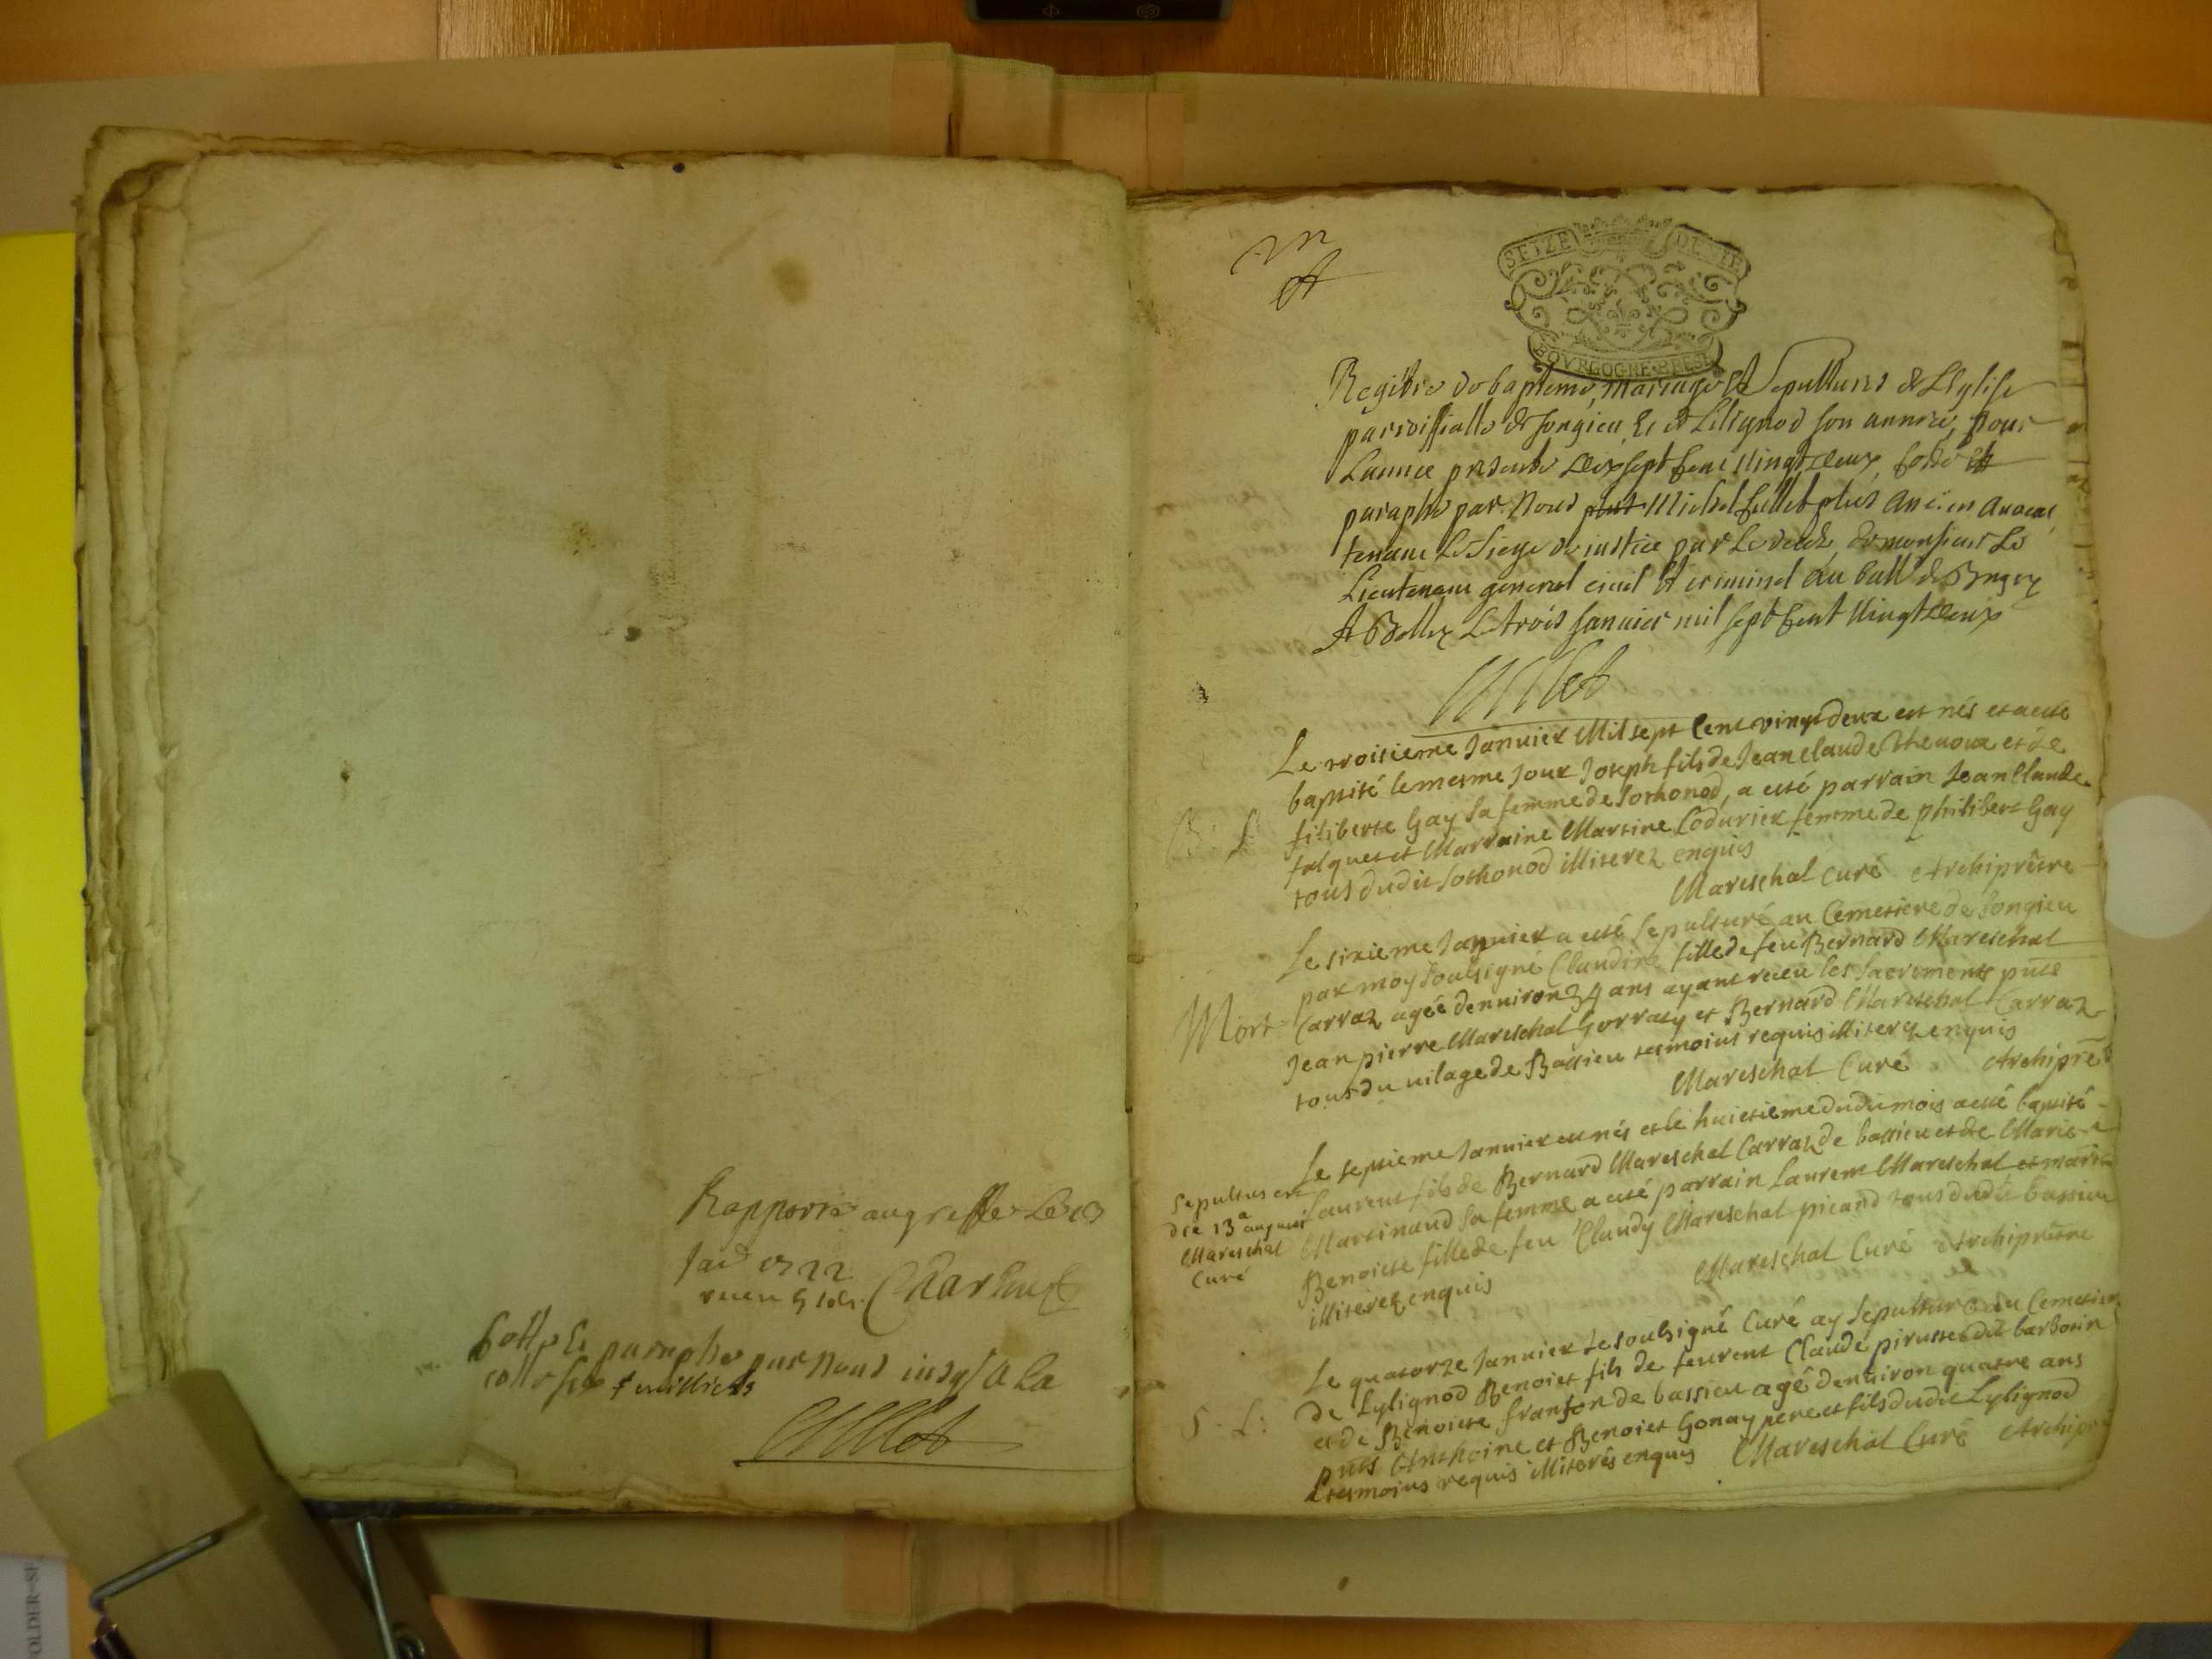 Rapporté au greffe le 23
Jad 1722
receu 5 sols. Charlin
Cotté Et paraphé par Nous jusq'a la
cotte feuilliets
SEIZE DENIE
BOVRGOGNE BRESE
Regitre de bapteme, mariage Et sepultures de L'Eglise
parroissialle de songieu Et de Lilignod son annexe, pour
L'année presente dix sept Cent vingt deux, Cotté Et
paraphé par Nous plus Michel Cullet plus ancien avocat
tenant le siege de justice par le decedz de monsieur le
Lieutenant general civil Et criminel au ball. de Bugey
A Belley le trois Janvier mil sept Cent vingt deux
Le troisieme Janvier Mil sept Cent vingt deux est nés et a esté
baptisé le mesme Jour Joseph fils de Jean Claude Thenoux et de
filiberte Gay sa femme de Sothonod, a esté parrain Jean Claude
falquet et Marraine Martine Codurier femme de philibert Gay
tous dudit Sothonod illiterez enquis
Mareschal Curé Archiprêtre
B: S
Le sixieme Janvier a esté sepulturé au Cemetiere de Songieu
par moy soubsigné Claudine fille de feu Bernard Mareschal
Carraz agée d'environ 34 ans ayant receu les sacrements pnts
Jean pierre Mareschal Gorraty et Bernard Mareschal Carraz
tous du vilage de Bassieu tesmoins requis illiterez enquis
Mareschal Curé Archiprê
Mort
Le septieme Janvier est nés et le huictieme dudit mois a esté baptisé
Laurent fils de Bernard Mareschal Carraz de bassieu et de Marie
Martinand sa femme a esté parrain Laurent Mareschal et marr
Benoiete fille de feu Claudy Mareschal picand tous dudit bassieu
illiterez enquis
Mareschal Curé Archiprêtre
Sepultus est
die 13a augusti
Mareschal
Curé
Le quatorze Janvier Je soubsigné Curé ay sepulturé au Cemetiere
de Lylignod Benoiet fils de feurent Claude pirusset dit barbotin
et de Benoiete franson de bassieu agé d'environ quatre ans
pnts Anthoine et Benoiet Gonay pere et fils dudit Lylignod
tesmoins requis illiterés enquis Mareschal Curé Archipr
S. L: